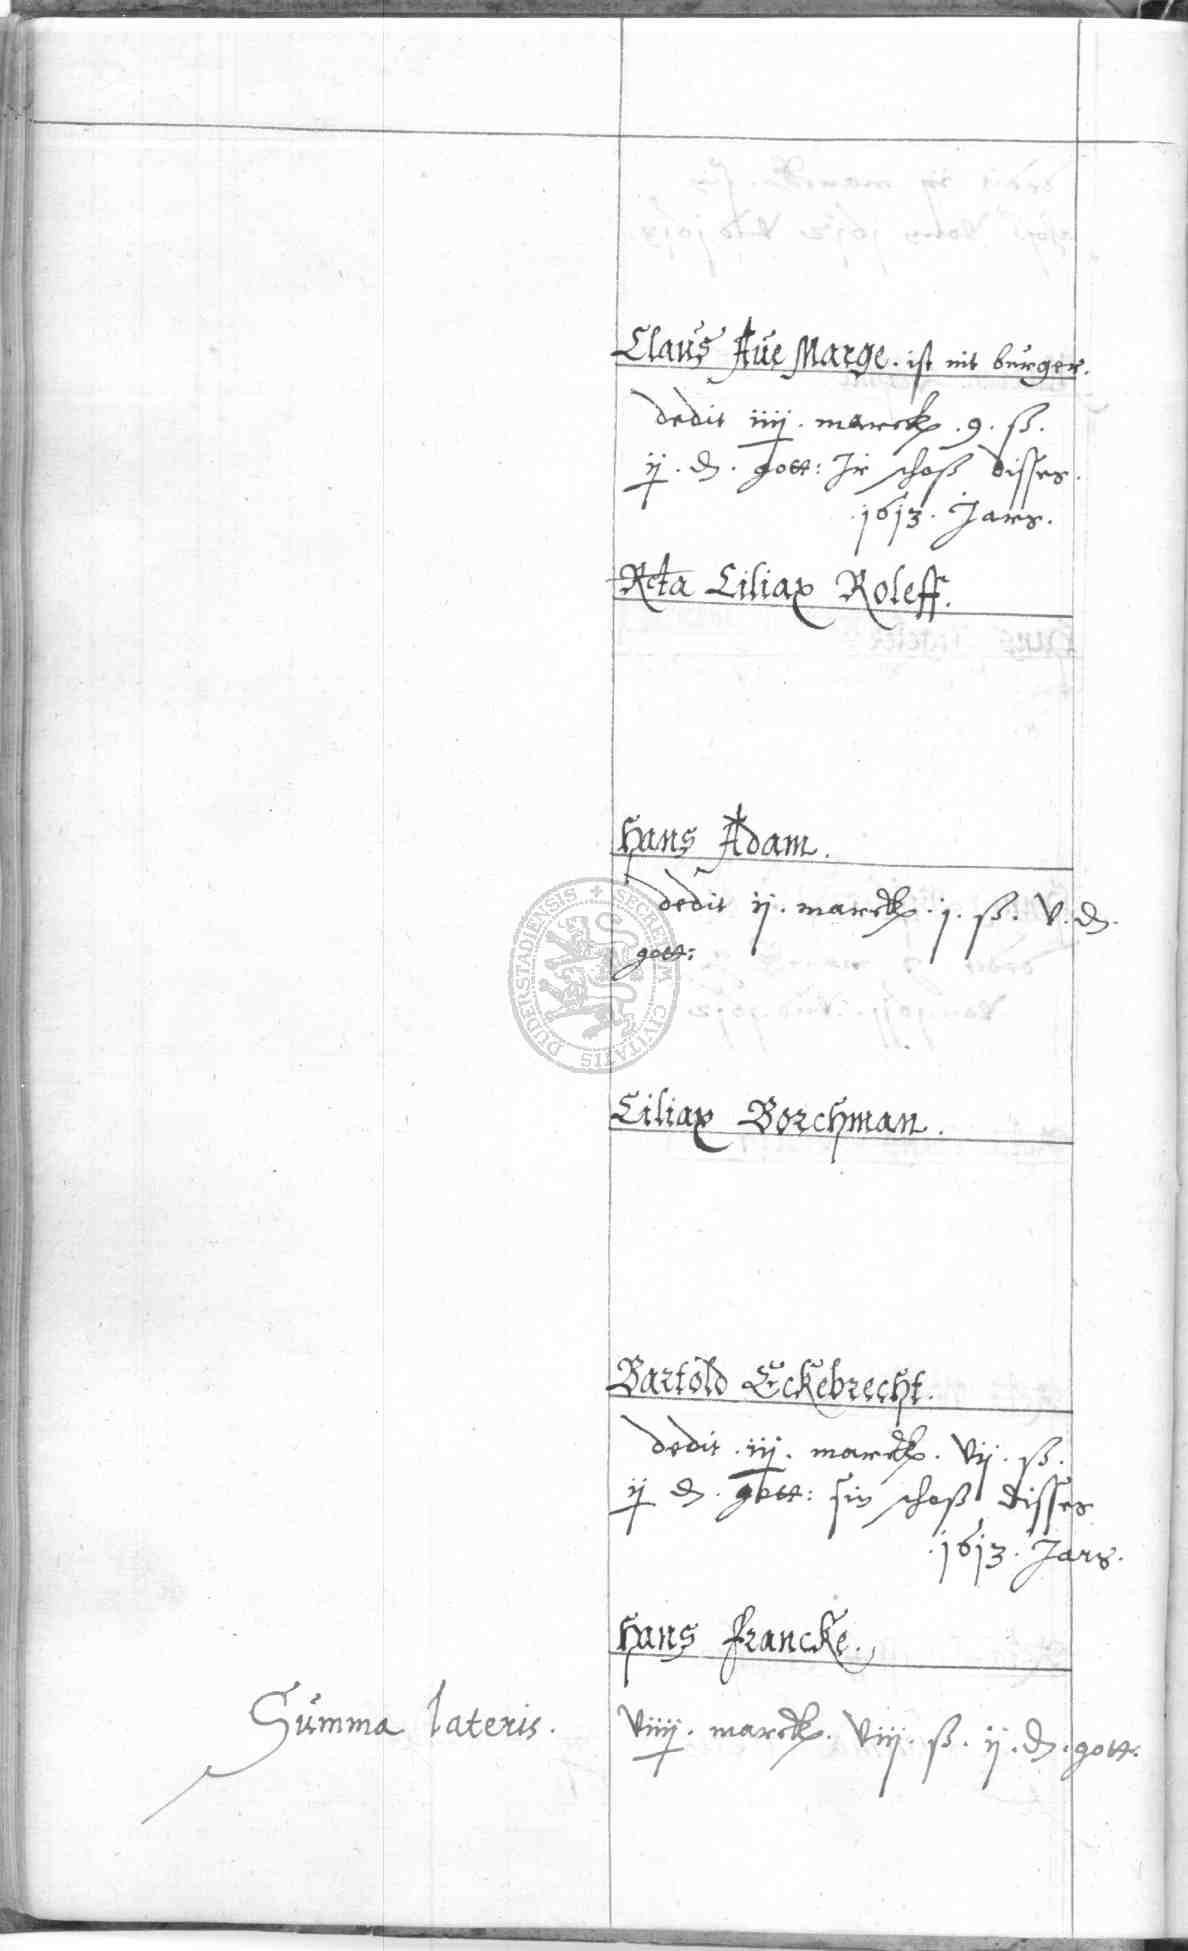 Claus Aue Marge. ist nit burger.
dedit iiij. marck. 9. ß.
ij. d. gott: Ir schoß disses.
.1613. Jars.
Rcta Ciliax Roleff.
Hans Adam.
dedit ij. marck. j. ß. v. d.
gott:
DUDERSTADIENSIS + SECRETUM CIVITATIS
Ciliax Borchman.
Bartold Eckebrecht.
dedit. iij. marck. vij. ß.
ij d. gott: sin schoß disses
.1613. Jars.
Hans Francke.
Summa lateris. viiij. marck. viij. ß. ij. d. gott.